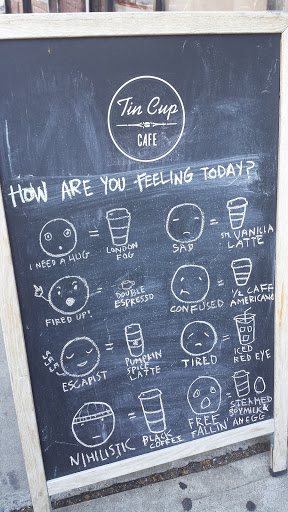 Tin Cup
CAFE
HOW ARE YOU FEELING TODAY?
I NEED A HUG
=
LONDON
FOG
SAD
=
SM. VANILLA
LATTE
FIRED UP!
=
DOUBLE
ESPRESSO
CONFUSED
=
1/2 CAFF
AMERICANO
SELF
ESCAPIST
=
PUMPKIN
SPICE
LATTE
TIRED
=
ICED
RED EYE
NIHILISTIC
=
BLACK
COFFEE
FREE
FALLIN'
=
STEAMED
SOYMILK &
AN EGG